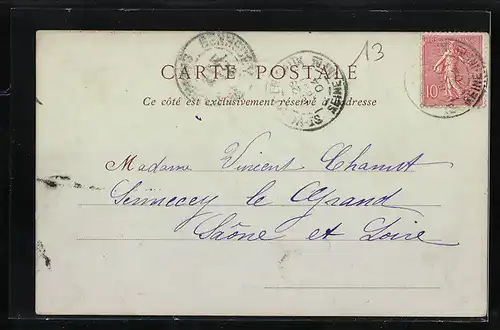 13
CARTE POSTALE
Ce côté est exclusivement réservé à l'adresse
10
SEINE
Madame Vincent Chanut
Sennecey le Grand
Saône et Loire